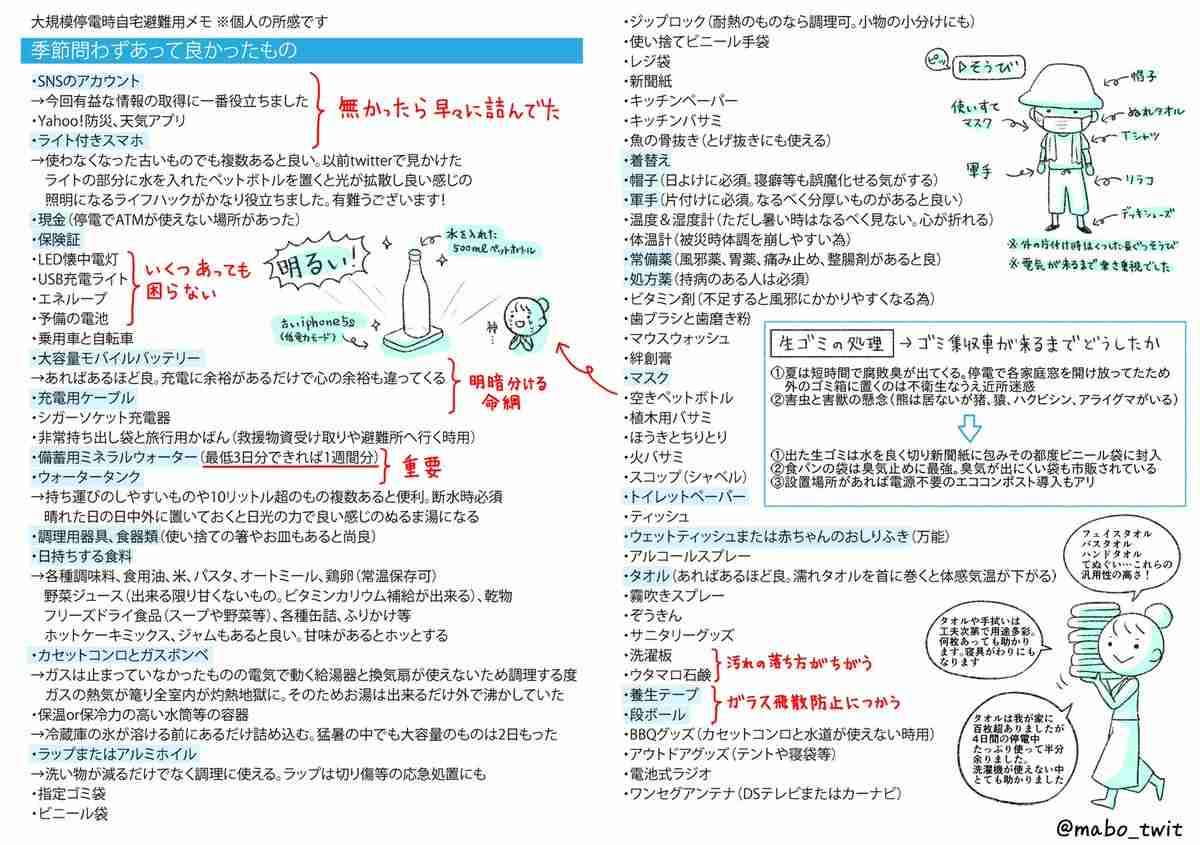 大規模停電時自宅避難用メモ ※個人の所感です
季節問わずあって良かったもの
・SNSのアカウント
→今回有益な情報の取得に一番役立ちました
・Yahoo!防災、天気アプリ
無かったら早々に詰んでた
・ライト付きスマホ
→使わなくなった古いものでも複数あると良い。以前twitterで見かけた
ライトの部分に水を入れたペットボトルを置くと光が拡散し良い感じの
照明になるライフハックがかなり役立ちました。有難うございます!
・現金(停電でATMが使えない場所があった)
・保険証
・LED懐中電灯
・USB充電ライト
・エネループ
・予備の電池
いくつあっても
困らない
明るい!
水を入れた
500mlペットボトル
古いiphone5s
(低電力モード)
神…
・乗用車と自転車
・大容量モバイルバッテリー
→あればあるほど良。充電に余裕があるだけで心の余裕も違ってくる
・充電用ケーブル
明暗分ける
命綱
・シガーソケット充電器
・非常持ち出し袋と旅行用かばん(救援物資受け取りや避難所へ行く時用)
・備蓄用ミネラルウォーター(最低3日分できれば1週間分)
重要
・ウォータータンク
→持ち運びのしやすいものや10リットル超のもの複数あると便利。断水時必須
晴れた日の日中外に置いておくと日光の力で良い感じのぬるま湯になる
・調理用器具、食器類(使い捨ての箸やお皿もあると尚良)
・日持ちする食料
→各種調味料、食用油、米、パスタ、オートミール、鶏卵(常温保存可)
野菜ジュース(出来る限り甘くないもの。ビタミンカリウム補給が出来る)、乾物
フリーズドライ食品(スープや野菜等)、各種缶詰、ふりかけ等
ホットケーキミックス、ジャムもあると良い。甘味があるとホッとする
・カセットコンロとガスボンベ
→ガスは止まっていなかったものの電気で動く給湯器と換気扇が使えないため調理する度
ガスの熱気が篭り全室内が灼熱地獄に。そのためお湯は出来るだけ外で沸かしていた
・保温or保冷力の高い水筒等の容器
→冷蔵庫の氷が溶ける前にあるだけ詰め込む。猛暑の中でも大容量のものは2日もった
・ラップまたはアルミホイル
→洗い物が減るだけでなく調理に使える。ラップは切り傷等の応急処置にも
・指定ゴミ袋
・ビニール袋
・ジップロック(耐熱のものなら調理可。小物の小分けにも)
・使い捨てビニール手袋
・レジ袋
・新聞紙
・キッチンペーパー
・キッチンバサミ
・魚の骨抜き(とげ抜きにも使える)
・着替え
・帽子(日よけに必須。寝癖等も誤魔化せる気がする)
・軍手(片付けに必須。なるべく分厚いものがあると良い)
・温度&湿度計(ただし暑い時はなるべく見ない。心が折れる)
・体温計(被災時体調を崩しやすい為)
・常備薬(風邪薬、胃薬、痛み止め、整腸剤があると良)
・処方薬(持病のある人は必須)
・ビタミン剤(不足すると風邪にかかりやすくなる為)
・歯ブラシと歯磨き粉
・マウスウォッシュ
・絆創膏
・マスク
・空きペットボトル
・植木用バサミ
・ほうきとちりとり
・火バサミ
・スコップ(シャベル)
・トイレットペーパー
・ティッシュ
・ウェットティッシュまたは赤ちゃんのおしりふき(万能)
・アルコールスプレー
・タオル(あればあるほど良。濡れタオルを首に巻くと体感気温が下がる)
・霧吹きスプレー
・ぞうきん
・サニタリーグッズ
・洗濯板
・ウタマロ石鹸
汚れの落ち方がちがう
・養生テープ
・段ボール
ガラス飛散防止につかう
・BBQグッズ(カセットコンロと水道が使えない時用)
・アウトドアグッズ(テントや寝袋等)
・電池式ラジオ
・ワンセグアンテナ(DSテレビまたはカーナビ)
ピッ
▷そうび
帽子
使いすて
マスク
ぬれタオル
Tシャツ
軍手
リラコ
デッキシューズ
※外の片付け時はくつした長ぐつそうび
※電気が来るまで暑さ重視でした
生ゴミの処理→ゴミ集収車が来るまでどうしたか
①夏は短時間で腐敗臭が出てくる。停電で各家庭窓を開け放ってたため
外のゴミ箱に置くのは不衛生なうえ近所迷惑
②害虫と害獣の懸念(熊は居ないが猪、猿、ハクビシン、アライグマがいる)
①出た生ゴミは水を良く切り新聞紙に包みその都度ビニール袋に封入
②食パンの袋は臭気止めに最強。臭気が出にくい袋も市販されている
③設置場所があれば電源不要のエココンポスト導入もアリ
フェイスタオル
バスタオル
ハンドタオル
てぬぐい…これらの
汎用性の高さ!
タオルや手拭いは
工夫次第で用途多彩。
何枚あっても助かり
ます。寝具がわりにも
なります
タオルは我が家に
百枚超ありましたが
4日間の停電中
たっぷり使って半分
余りました。
洗濯機が使えない中
とても助かりました
@mabo_twit